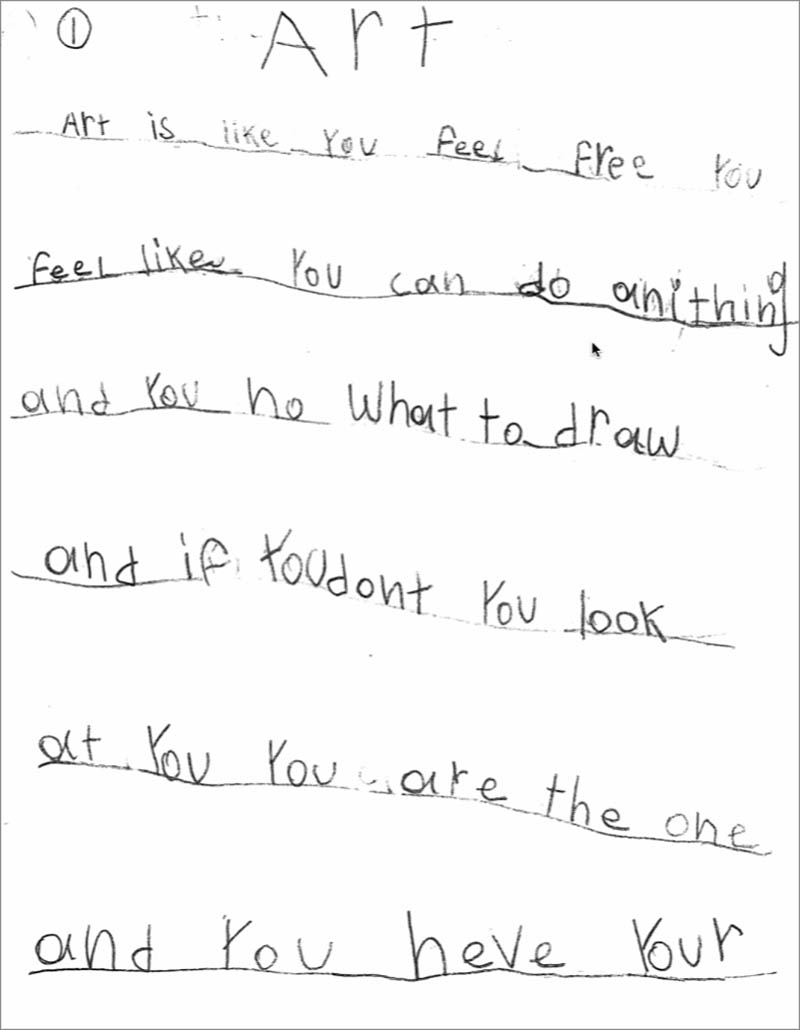 ① Art
Art is like you feel free you
feel like you can do anithing
and you no what to draw
and if you dont you look
at you you are the one
and you heve your